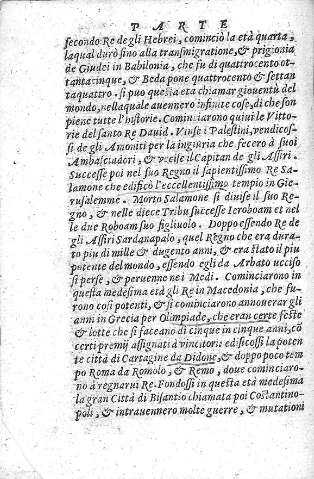 PARTE
secondo Re de gli Hebrei, cominciò la età quarta,
laqual durò sino alla transmigratione, & prigionia
de Giudei in Babilonia, che fu di quattrocento ot-
tantacinque, & Beda pone quattrocento & settan
taquattro. si puo questa età chiamar giouentù del
mondo, nellaquale auennero infinite cose, di che son
piene tutte l'historie. Cominciarono quiui le Vitto-
rie del santo Re Dauid. Vinse i Palestini, vendicos-
si de gli Amoniti per la ingiuria che fecero à suoi
Ambasciadori, & vccise il Capitan de gli Assiri.
Successe poi nel suo Regno il sapientissimo Re Sa-
lamone che edificò l'eccellentissimo tempio in Gie-
rusalemme. Morto Salamone si diuise il suo Re-
gno, & nelle diece Tribu successe Ieroboam et nel
le due Roboam suo figliuolo. Doppo essendo Re de
gli Assiri Sardanapalo, quel Regno che era dura-
to piu di mille & dugento anni, & era stato il piu
potente del mondo, essendo egli da Arbato vcciso
si perse, & peruenne nei Medi. Cominciarono in
questa medesima età gli Re in Macedonia, che fu-
rono cosi potenti, & si cominciarono annouerar gli
anni in Grecia per Olimpiade, che eran certe feste
& lotte che si faceano di cinque in cinque anni, cō
certi premij assignati à vincitori: edificossi la poten
te città di Cartagine da Didone, & doppo poco tem
po Roma da Romolo, & Remo, doue cominciaro-
no à regnarui Re. Fondossi in questa età medesima
la gran Città di Bisantio chiamata poi Costantino-
poli, & intrauennero molte guerre, & mutationi